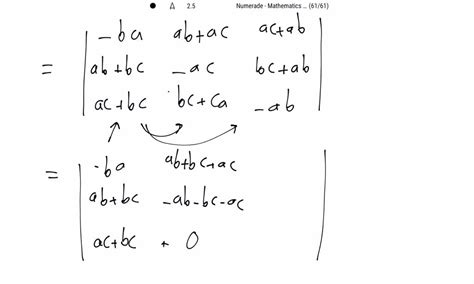 2.5 Numerade - Mathematics ... (61/61)
-bc ab+ac ac+ab
= ab+bc -ac bc+ab
ac+bc bc+ca -ab
= -bc ab+bc+ac
ab+bc -ab-bc-ac
ac+bc + 0